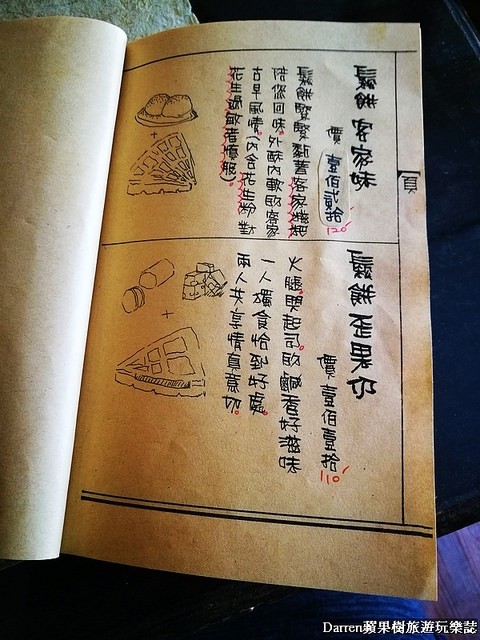 鬆餅 客家味
價 壹佰貳拾
120
鬆餅緊緊黏著客家糍粑
陪您回味。外酥內軟的客家
古早風情。(內含花生粉 對
花生過敏者慎服)。
頁
鬆餅 歪果仁
價 壹佰壹拾
110
火腿與起司的鹹香好滋味
一人獨食恰到好處。
兩人共享情真意切。
Darren蘋果樹旅遊玩樂誌